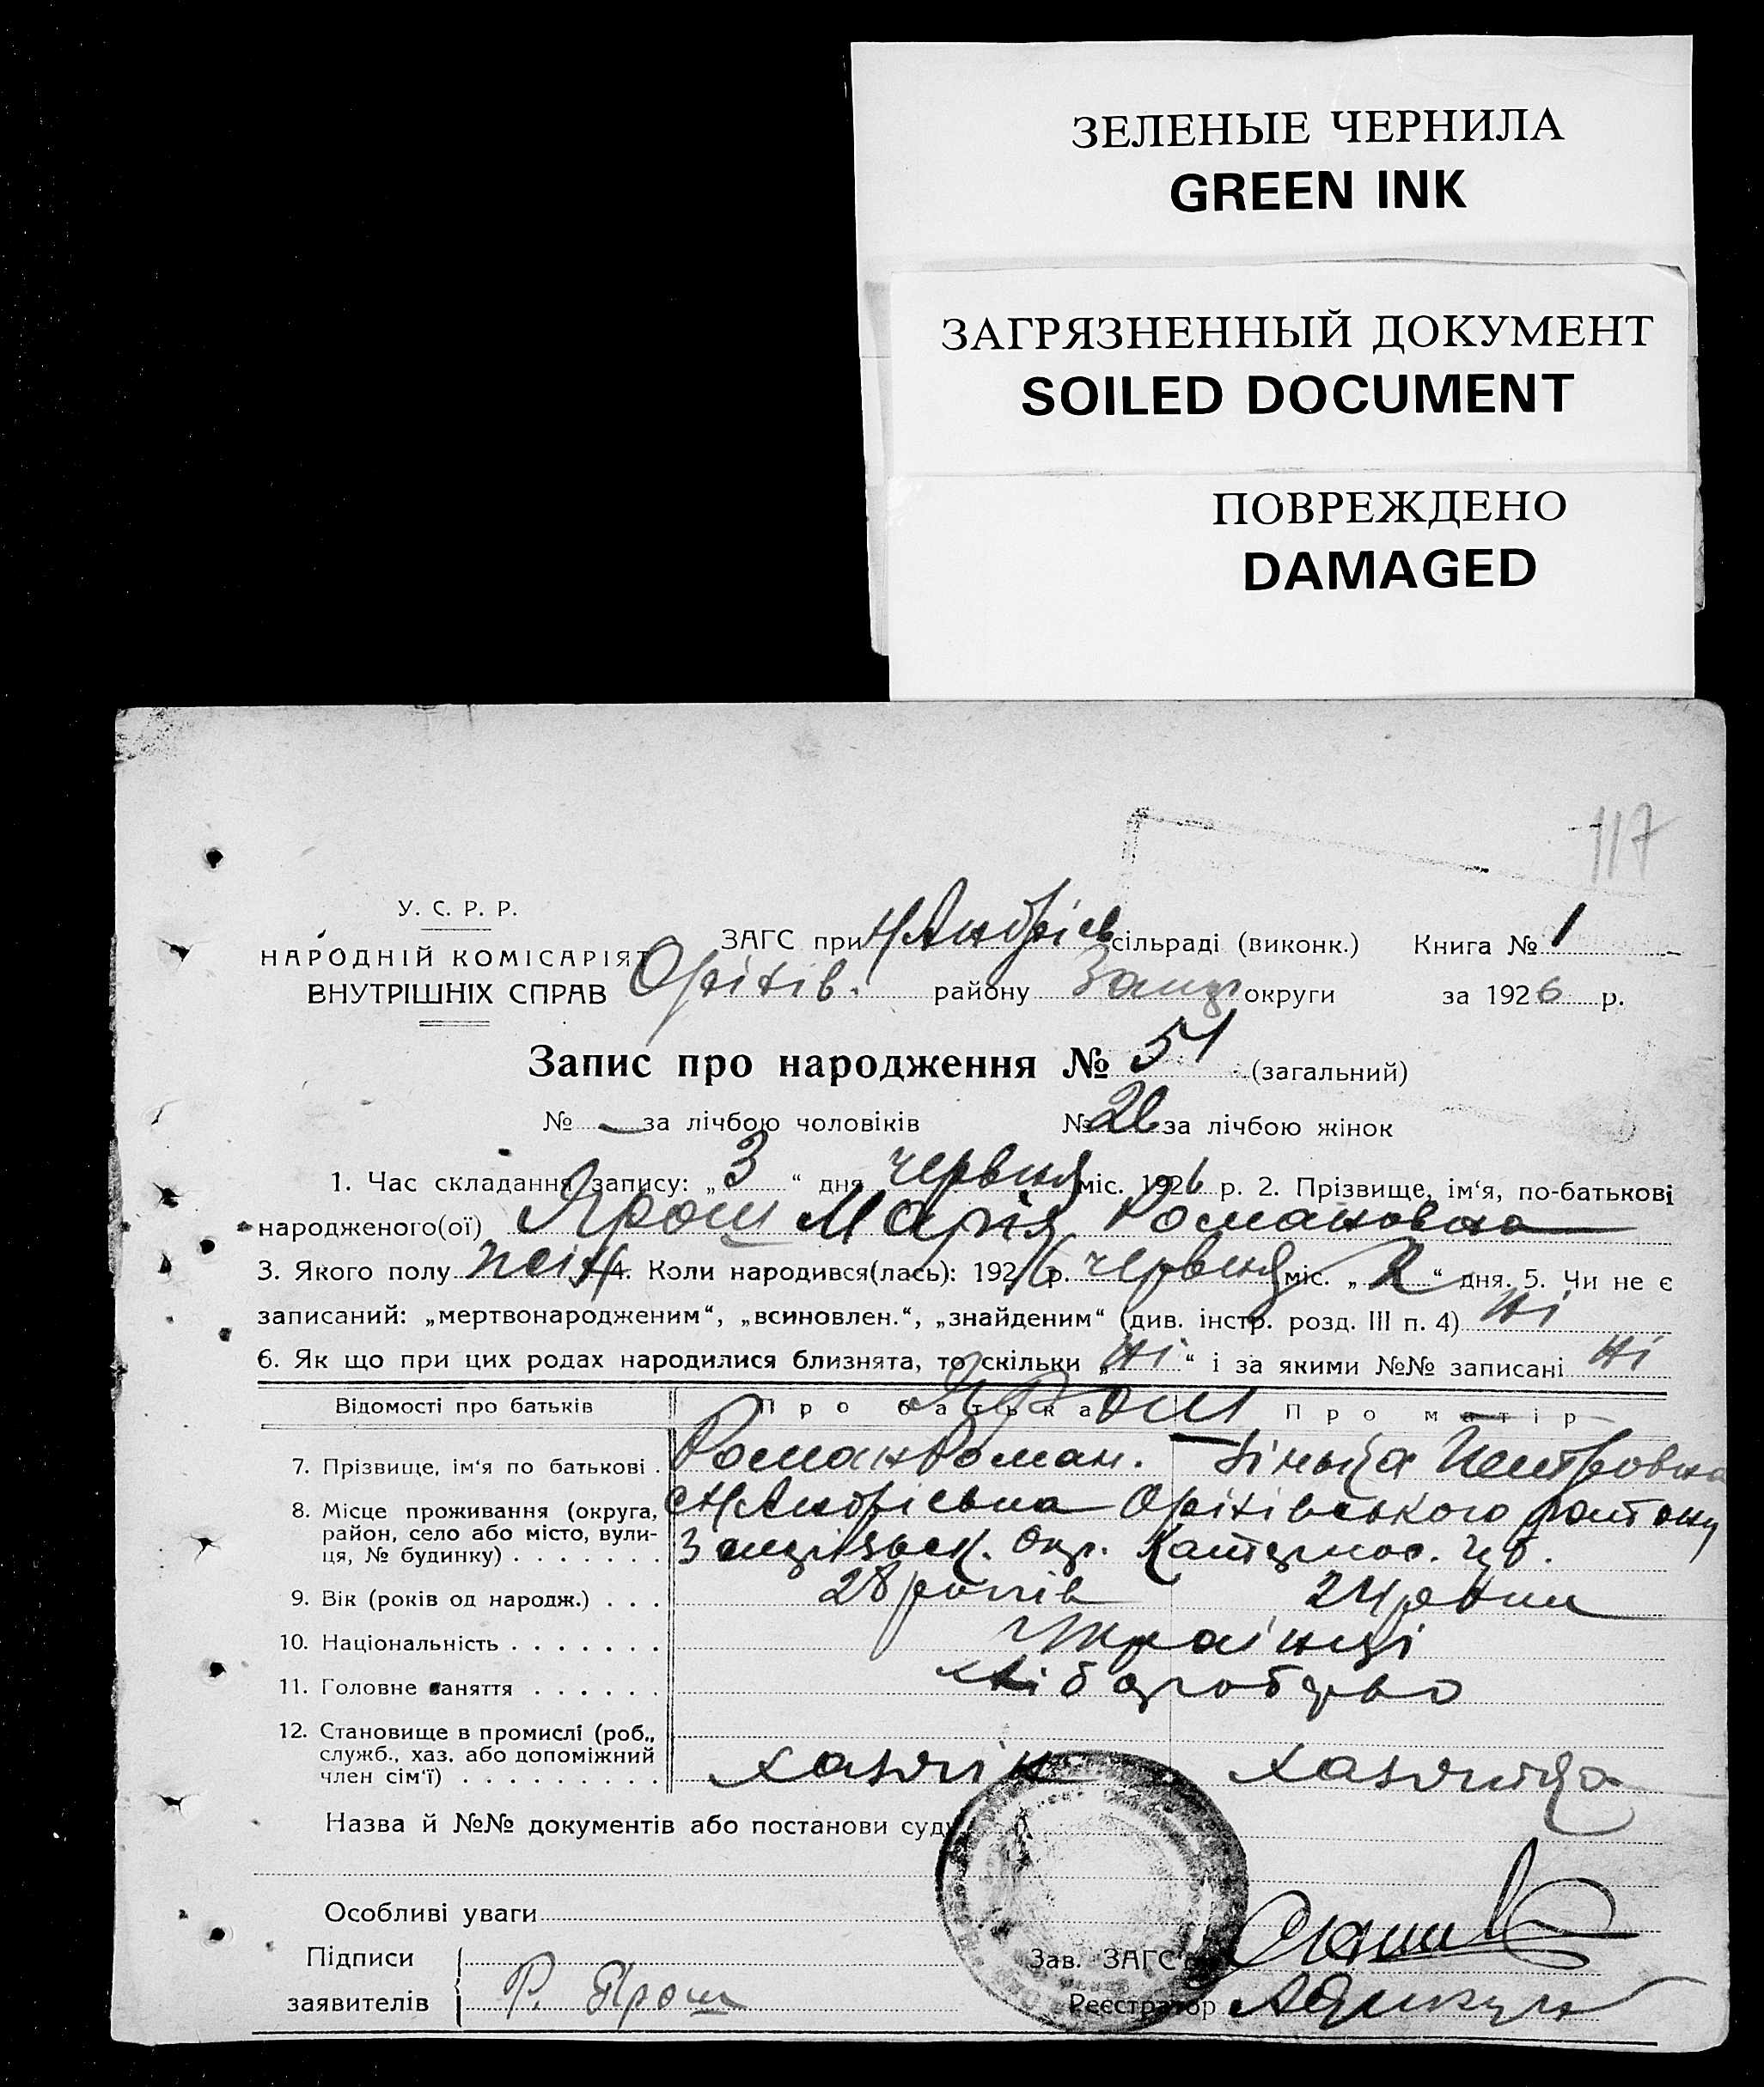 ЗЕЛЕНЫЕ ЧЕРНИЛА
GREEN INK
ЗАГРЯЗНЕННЫЙ ДОКУМЕНТ
SOILED DOCUMENT
ПОВРЕЖДЕНО
DAMAGED
117
У. С. Р. Р.
НАРОДНІЙ КОМІСАРІЯТ
ВНУТРІШНІХ СПРАВ
ЗАГС при Н Андрієв сільраді (виконк.) Книга № 1
Оріхів. району Запор округи за 1926 р.
Запис про народження № 51 (загальний)
№ — за лічбою чоловіків № 26 за лічбою жінок
1. Час складання запису: „3“ дня червня міс. 1926 р. 2. Прізвище, ім‘я, по-батькові
народженого(ої) Ярош Марія Романовна
3. Якого полу жін 4. Коли народився(лась): 1926 р. червня міс. „2“ дня. 5. Чи не є
записаний: „мертвонародженим“, „всиновлен.“, „знайденим“ (див. інстр. розд. III п. 4) ні
6. Як що при цих родах народилися близнята, то скільки „ні“ і за якими №№ записані ні
Відомості про батьків Про батька Про матір
Ярош
7. Прізвище, ім‘я по батькові . Роман Роман. — Петровна
8. Місце проживання (округа, район, село або місто, вулиця, № будинку) . . . . . . . Н Андрієвка Оріхівського району
Запорізьк. Окр. Катеринос. губ.
9. Вік (років од народж.) . . . 28 років 24 роки
10. Національність . . . . . . . Українці
11. Головне заняття . . . . . . хліборобство
12. Становище в промислі (роб., служб., хаз. або допоміжний член сім‘ї) . . . . . . . . . хазяїн хазяйка
Назва й №№ документів або постанови суду
Особливі уваги
Підписи
заявителів Р. Ярош
Зав. ЗАГС‘ом
Реєстратор